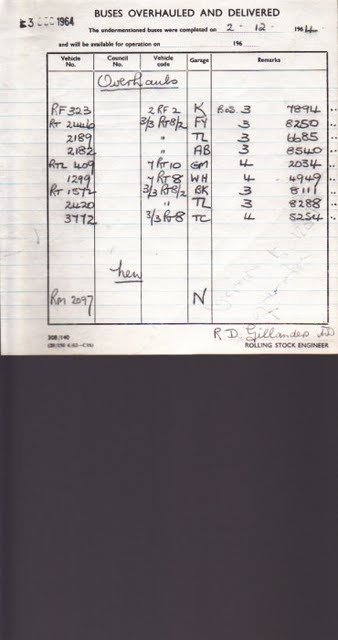 3 DEC 1964
BUSES OVERHAULED AND DELIVERED
The undermentioned buses were completed on 2 - 12 - 1964
and will be available for operation on 196
Vehicle No. Council No. Vehicle code Garage Remarks
Overhauls
RF 323 2RF2 K Bod. 3 7894
RT 2446 3/3 RT8/2 FY 3 8250
2189 " TL 3 6685
2182 " AB 3 8540
RTL 409 7RT10 GM 4 2034
1299 7RT8 WH 4 4949
RT 1572 3/3 RT8/2 BK 3 8111
2420 " TL 3 8288
3772 3/3 RT8 TC 4 5254
New
RM 2097 N
R D. Gillanders
308/140
ROLLING STOCK ENGINEER